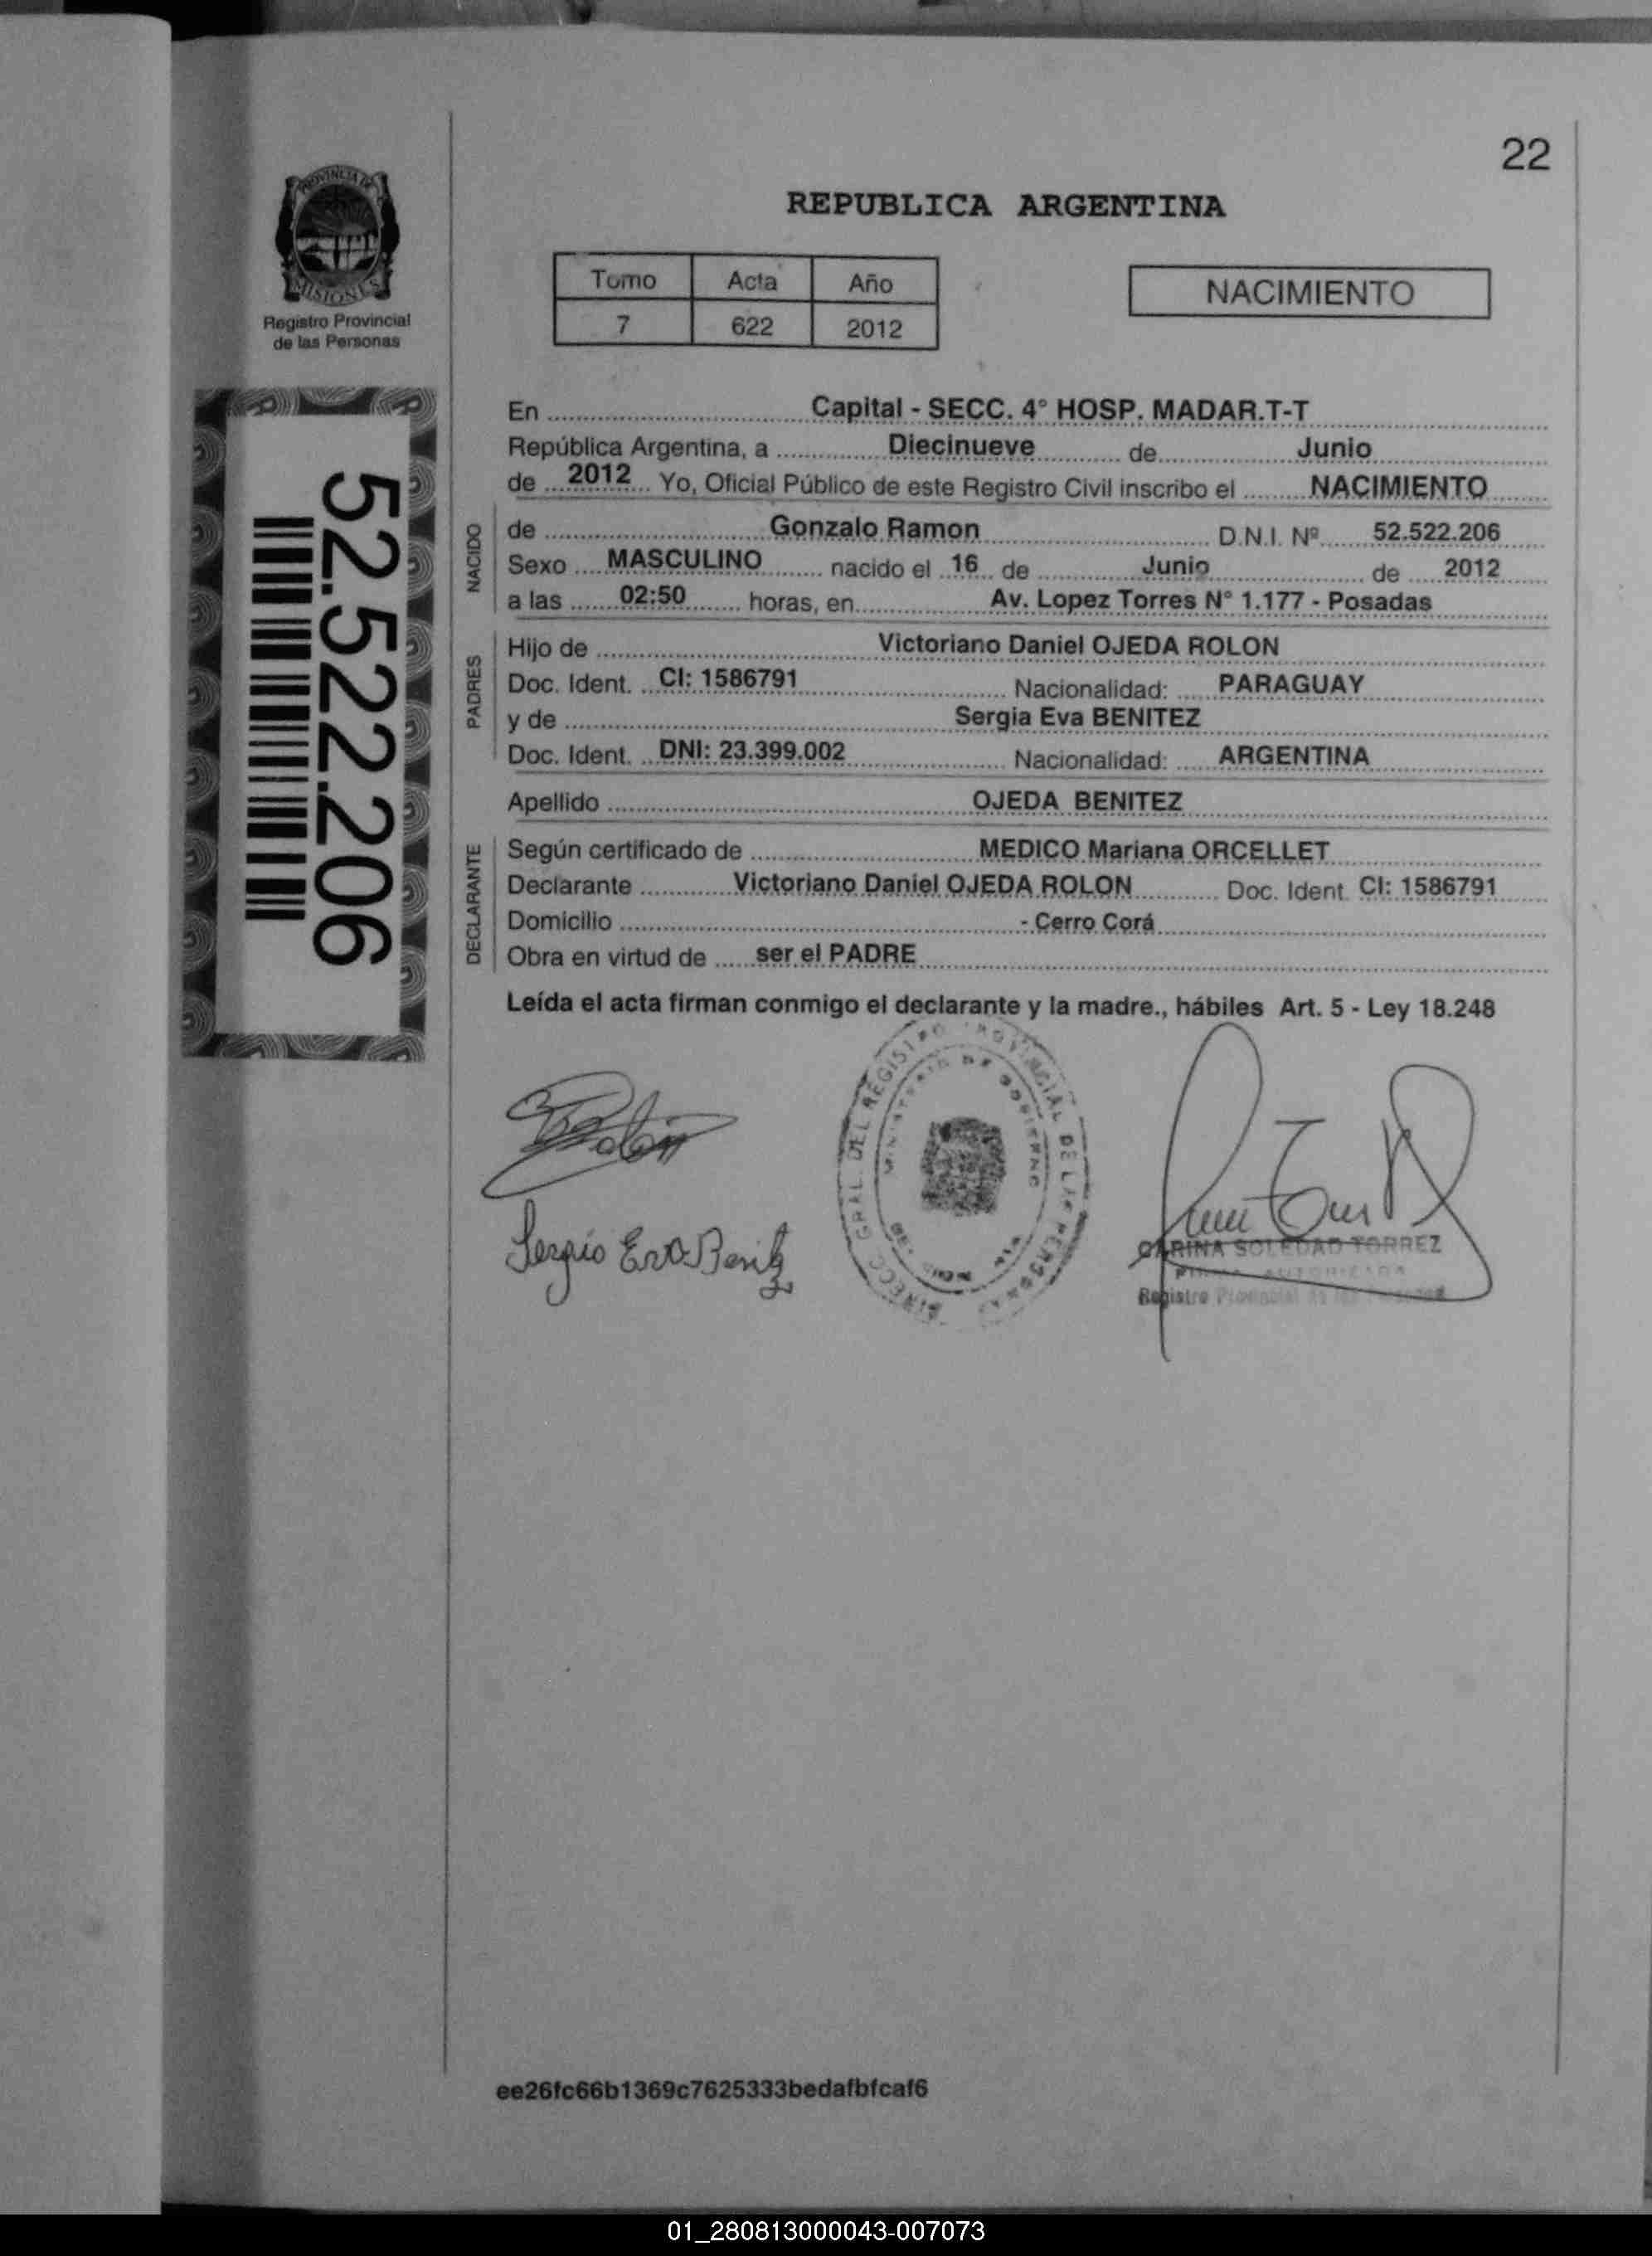 22
PROVINCIA DE
MISIONES
Registro Provincial
de las Personas
REPUBLICA ARGENTINA
Tomo Acta Año
7 622 2012
NACIMIENTO
52.522.206
En Capital - SECC. 4° HOSP. MADAR.T-T
República Argentina, a Diecinueve de Junio
de 2012 Yo, Oficial Público de este Registro Civil inscribo el NACIMIENTO
NACIDO
de Gonzalo Ramon D.N.I. Nº 52.522.206
Sexo MASCULINO nacido el 16 de Junio de 2012
a las 02:50 horas, en Av. Lopez Torres N° 1.177 - Posadas
PADRES
Hijo de Victoriano Daniel OJEDA ROLON
Doc. Ident. CI: 1586791 Nacionalidad: PARAGUAY
y de Sergia Eva BENITEZ
Doc. Ident. DNI: 23.399.002 Nacionalidad: ARGENTINA
Apellido OJEDA BENITEZ
DECLARANTE
Según certificado de MEDICO Mariana ORCELLET
Declarante Victoriano Daniel OJEDA ROLON Doc. Ident. CI: 1586791
Domicilio - Cerro Corá
Obra en virtud de ser el PADRE
Leída el acta firman conmigo el declarante y la madre., hábiles Art. 5 - Ley 18.248
DIRECC. GRAL. DEL REGISTRO PROVINCIAL DE LAS PERSONAS
MINISTERIO DE GOBIERNO
Sergia Eva Benitez
CARINA SOLEDAD TORREZ
FIRMA AUTORIZADA
Registro Provincial de las Personas
ee26fc66b1369c7625333bedafbfcaf6
01_280813000043-007073